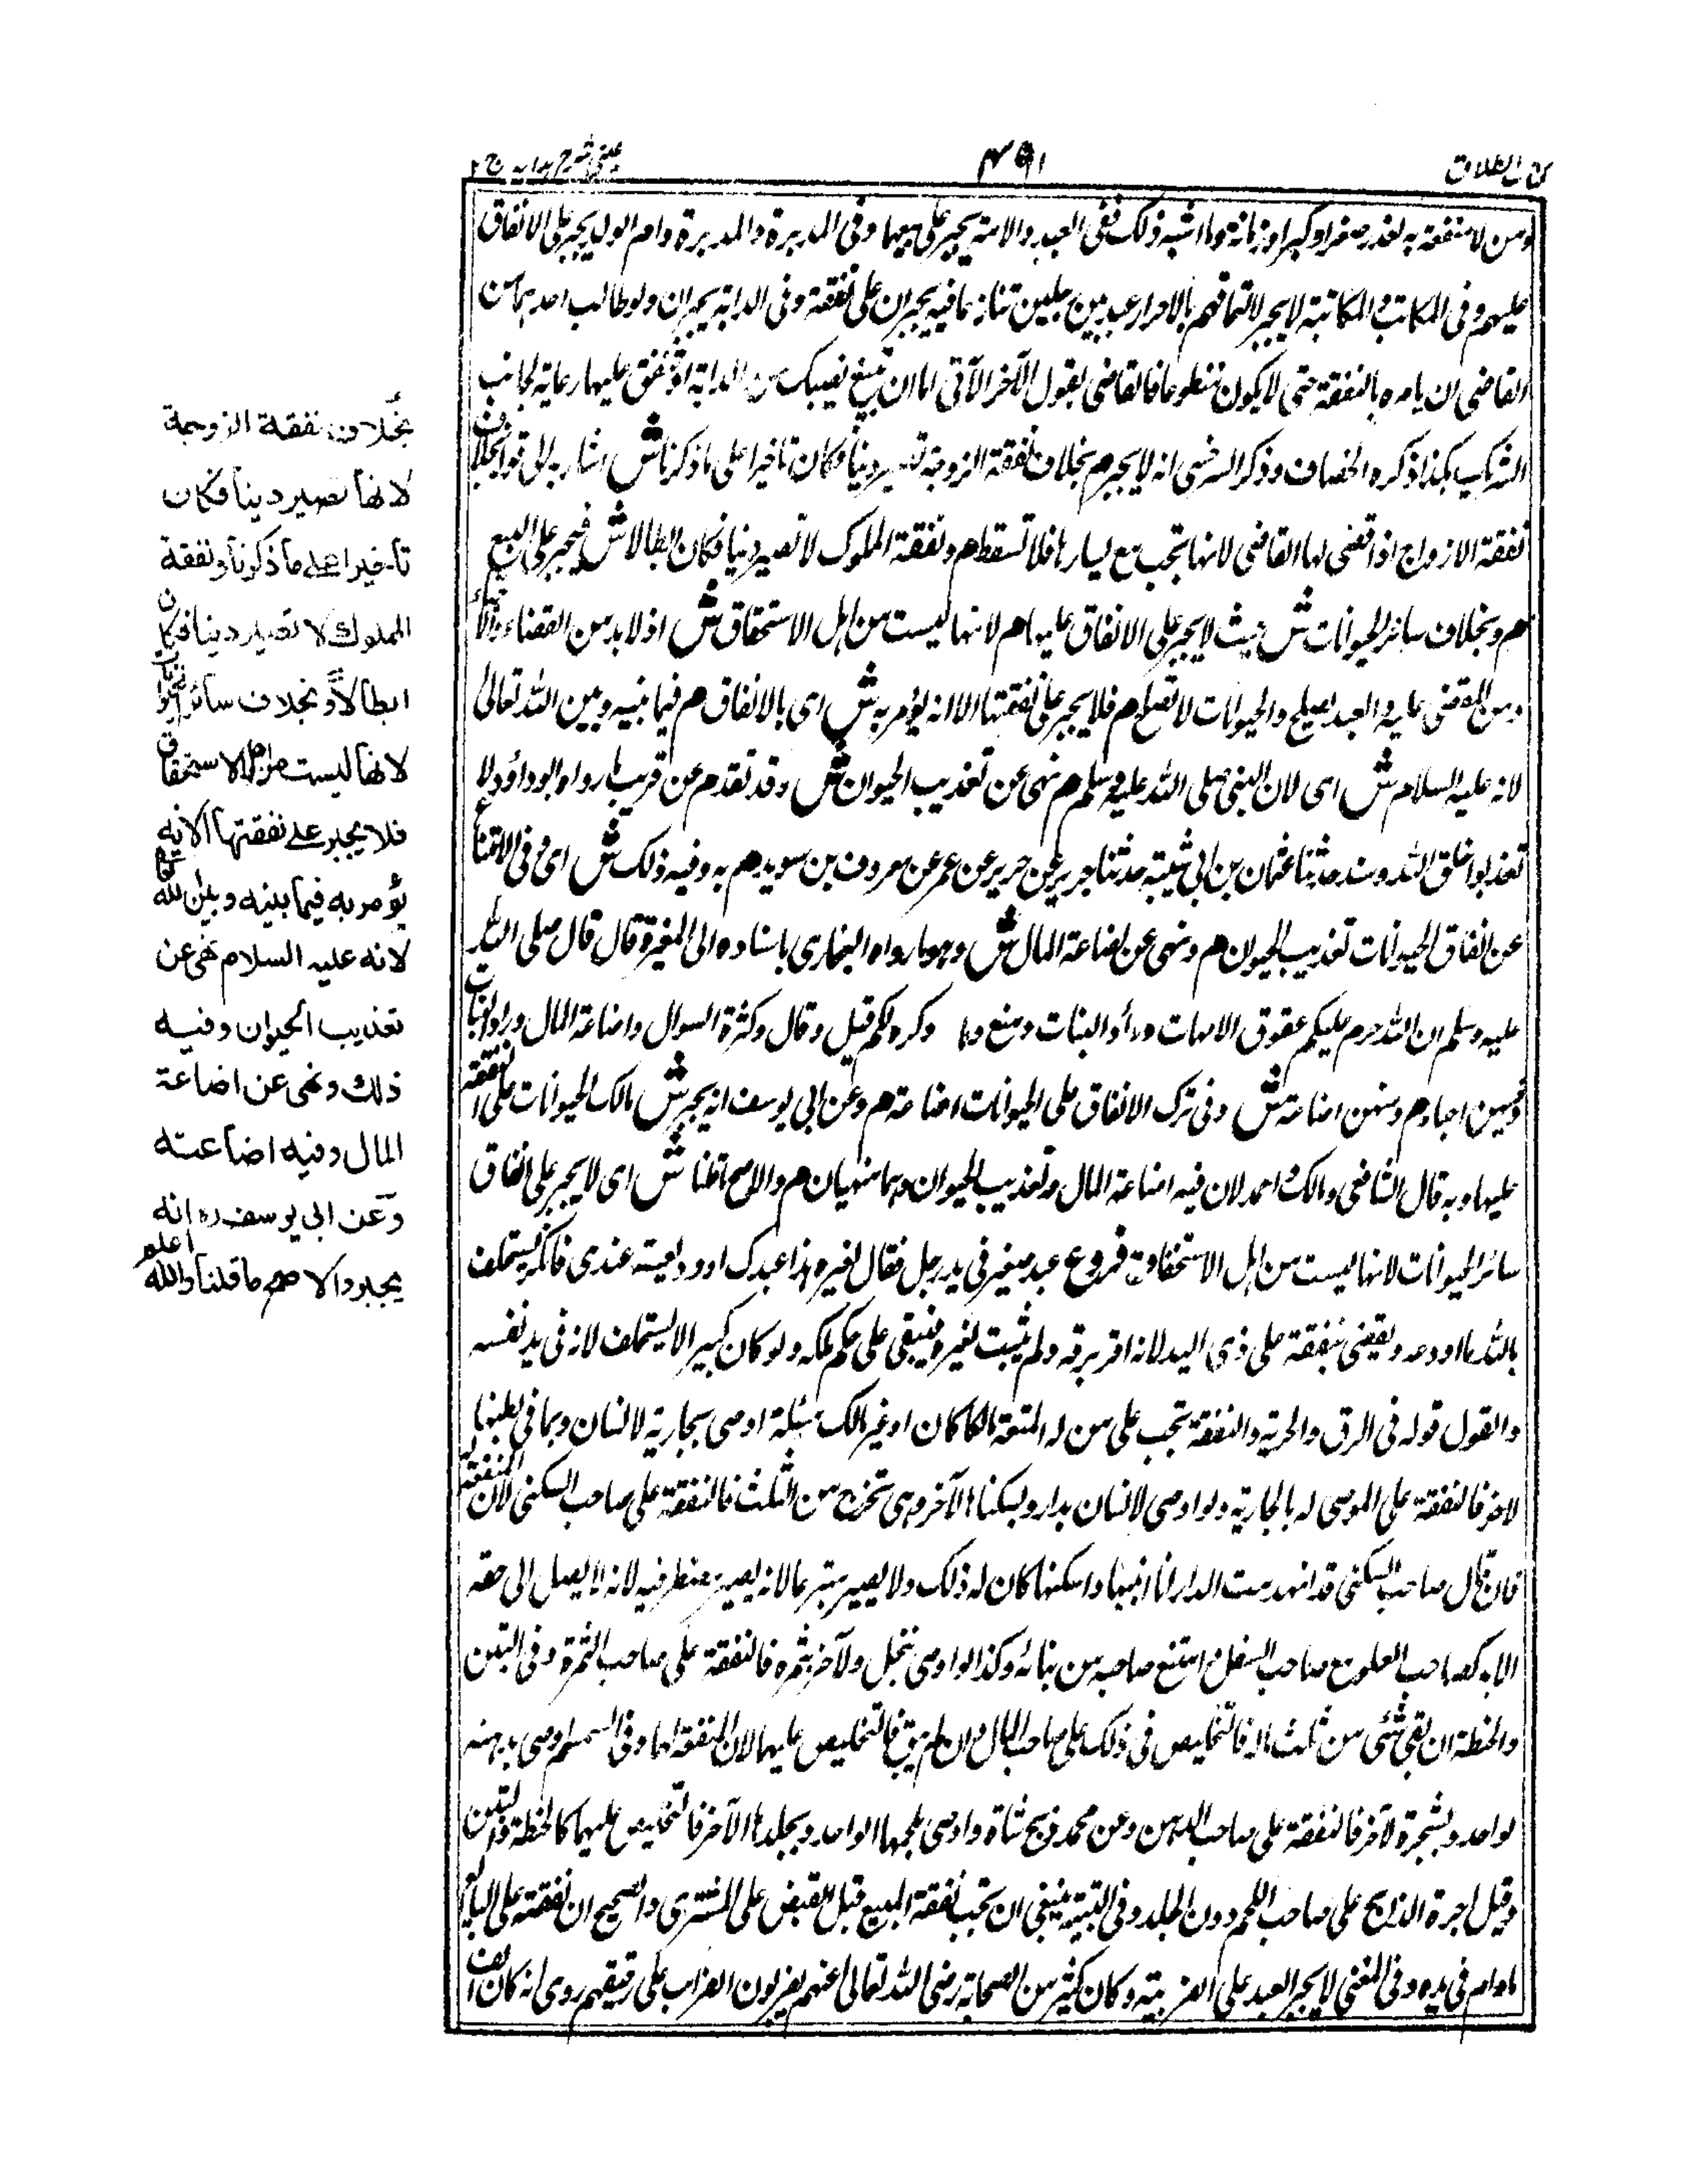 كتاب الطلاق
٤٩١
عينى شرح هدايه ج ٢
ومن لا منفعة به لعذر صغر او كبر او زمانة وما اشبه ذلك ففى العبد والامة يجبر على بيعها وفى المدبرة والمدبرة وام الولد يجبر على الانفاق
عليهم وفى المكاتب والمكاتبة لا يجبر لالتحاقهم بالاحرار عبد بين رجلين تنازعا فيه يجبران على نفقة وفى الدابة يجبران ولو طالب احدهما من
القاضى ان يامره بالنفقة حتى لا يكون متطوعا فالقاضى يقول الآخر الآتى اما ان تبيع نصيبك من الدابة او تنفق عليها رعاية لجانب
الشريك هكذا ذكره الخصاف وذكر السرخسى انه لا يجبر م بخلاف نفقة الزوجة تصير دينا فكان تاخيرا على ما ذكرنا ش اشار به الى قوله بخلاف
نفقة الازواج اذا قضى لها القاضى لانها تجب مع يسارها فلا تسقط م ونفقة المملوك لا تصير دينا فكان ابطالا ش فيجبر على البيع
م وبخلاف سائر الحيوانات ش حيث لا يجبر على الانفاق عليها م لانها ليست من اهل الاستحقاق ش اذ لا بد من القضاء
ومن المقضى عليه والعبد يصلح والحيوانات لا تصلح م فلا يجبر على نفقتها الا انه يؤمر به ش اى بالانفاق م فيما بينه وبين الله تعالى
لانه عليه السلام ش اى لان النبى صلى الله عليه وسلم م نهى عن تعذيب الحيوان ش وقد تقدم عن قريب ما رواه ابو داؤد لا
تعذبوا خلق الله وسند حدثنا عثمان بن ابى شيبة حدثنا جرير عن جرير عن عمر عن معروف بن سويد م به وفيه ذلك ش اى وفى الامتناع
عن انفاق الحيوانات تعذيب الحيوان م ونهى عن اضاعة المال ش وهو ما رواه البخارى باسناده الى المغيرة قال قال صلى الله
عليه وسلم ان الله حرم عليكم عقوق الامهات ووأد البنات ومنع وها وكره لكم قيل وقال وكثرة السوال واضاعة المال ووأد البنات
دفنهن احياء م وفيه اضاعة ش وفى ترك الانفاق على الحيوانات اضاعة م وعن ابى يوسف انه يجبر ش مالك الحيوانات على النفقة
عليها وبه قال الشافعى ومالك واحمد لان فيه اضاعة المال وتعذيب الحيوان وهما منهيان م والاصح ما قلنا ش اى لا يجبر على انفاق
سائر الحيوانات لانها ليست من اهل الاستحقاق فروع عبد صغير فى يد رجل فقال لغيره هذا عبدك اودعته عندى فانكر يستحلف
بالله ما اودعه ويقضى بنفقته على ذى اليد لانه اقر برقه ولم يثبت لغيره فيبقى على حكم ملكه ولو كان كبيرا لا يستحلف لانه فى يد نفسه
والقول قوله فى الرق والحرية والنفقة تجب على من له المنفعة مالكا كان او غير مالك مسئلة اوصى بجارية لانسان وبما فى بطنها
لآخر فالنفقة على الموصى له بالجارية ولو اوصى لانسان بدار وبسكناها لآخر وهى تخرج من الثلث فالنفقة على صاحب السكنى لان المنفعة له
فان قال صاحب السكنى قد انهدمت الدار انا ابنيها واسكنها كان له ذلك ولا يصير متبرعا لانه يصير مضطرا فيه لانه لا يصل الى حقه
الا به كصاحب العلو مع صاحب السفل امتنع صاحبه من بنائه وكذا لو اوصى بنخل ولآخر بثمره فالنفقة على صاحب الثمرة وفى التبن
والحنطة ان بقى شئى من ثلث ماله فالتخليص فى ذلك على صاحب المال وان لم يبق فالتخليص عليهما لان المنفعة لهما وفى السمسم اوصى بدهنه
لواحد وبثجيره لآخر فالنفقة على صاحب الدهن وعن محمد ذبح شاة واوصى بلحمها لواحد وبجلدها لآخر فالتخليص عليهما كالحنطة والتبن
وقيل اجرة الذابح على صاحب اللحم دون الجلد وفى القنية ينبغى ان تجب نفقة المبيع قبل القبض على المشترى والصحيح ان نفقته على البائع
ما دام فى يده وفى المغنى لا يجبر العبد على الضريبة وكان كثير من الصحابة رضى الله تعالى عنهم يضربون الضراب على رقيقهم روى انه كان
بخلاف نفقة الزوجة
لانها تصير دينا فكان
تأخيرا على ما ذكرنا ونفقة
المملوك لا تصير دينا فكان
ابطالاً وبخلاف سائر الحيوانات
لانها ليست من اهل الاستحقاق
فلا يجبر على نفقتها الا انه
يؤمر به فيما بينه وبين الله تعالى
لانه عليه السلام نهى عن
تعذيب الحيوان وفيه
ذلك ونهى عن اضاعة
المال وفيه اضاعته
وعن ابى يوسف ره انه
يجبر والاصح ما قلنا والله اعلم